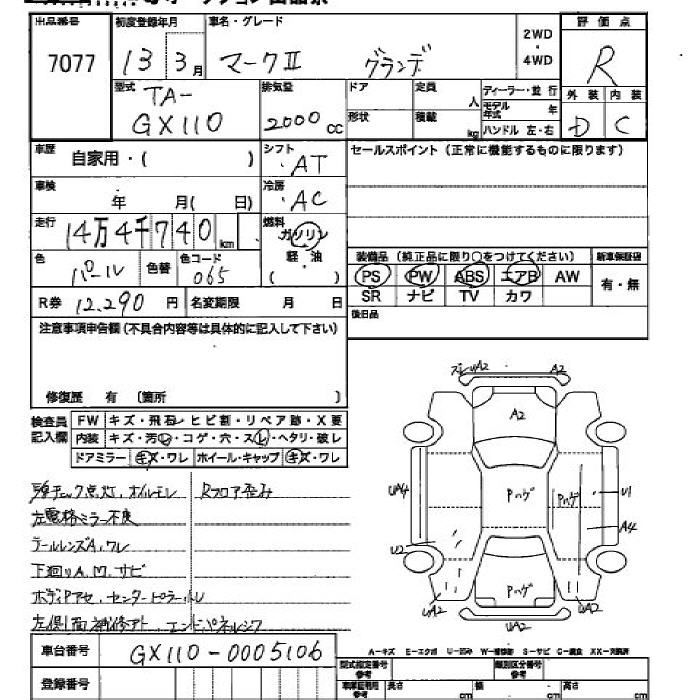 出品番号 初度登録年月 車名・グレード 2WD・4WD 評価点
7077 13 3月 マークⅡ グランデ R
型式 TA-GX110 排気量 2000cc ドア 定員 人 ディーラー・並行 外装 内装
形状 積載 kg モデル年式 年 D C
ハンドル 左・右
車歴 自家用・( ) シフト AT セールスポイント (正常に機能するものに限ります)
車検 年 月( 日) 冷房 AC
走行 14万4千740km 燃料 ガソリン
軽・油
( )
色 パール 色替 色コード 065
装備品 (純正品に限り○をつけてください) 新車保証書
PS PW ABS エアB AW 有・無
SR ナビ TV カワ
R券 12,290円 名変期限 月 日 後日品
注意事項申告欄 (不具合内容等は具体的に記入して下さい)
修復歴 有 〔箇所 〕
検査員記入欄 FW キズ・飛石・ヒビ割・リペア跡・X要
内装 キズ・汚し・コゲ・穴・スレ・ヘタリ・破レ
ドアミラー キズ・ワレ ホイール・キャップ キズ・ワレ
オイルモレ Rフロア歪み
左電格ミラー不良
テールレンズA、ワレ
下廻りA.M.サビ
ボディPアセ、センターピラー
左側面補修アト エンドパネルシワ
ズレ UA2 A2
A2
UA4 Pハゲ Pハゲ U1
A4
U2
Pハゲ
UA2 UA2
UA2
車台番号 GX110-0005106
A-キズ E-エクボ U-凹み W-補修跡 S-サビ C-腐食 XX-交換済
登録番号
型式指定番号 参考 類別区分番号 参考
長さ cm 幅 cm 高さ cm